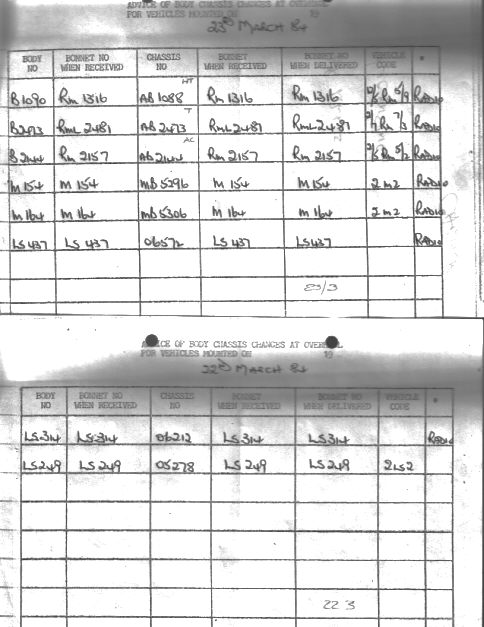 ADVICE OF BODY CHASSIS CHANGES AT OVERHAUL
FOR VEHICLES MOUNTED ON 19
23RD MARCH 84
BODY NO BONNET NO WHEN RECEIVED CHASSIS NO BONNET WHEN RECEIVED BONNET NO WHEN DELIVERED VEHICLE CODE *
HT
B1090 RM 1316 AB 1088 RM 1316 RM 1316 RM 5/9 RADIO
T
B2473 RML 2481 AB 2473 RML 2481 RML 2481 2/7 RM 7/3 RADIO
AC
B2144 RM 2157 AB 2144 RM 2157 RM 2157 RM 5/2 RADIO
M 154 M 154 MB 5296 M 154 M 154 2 M2 RADIO
M 164 M 164 MB 5306 M 164 M 164 2 M2 RADIO
LS 437 LS 437 06572 LS 437 LS 437 RADIO
23/3
CE OF BODY CHASSIS CHANGES AT OVER
FOR VEHICLES MOUNTED ON 19
22ND MARCH 84
BODY NO BONNET NO WHEN RECEIVED CHASSIS NO BONNET WHEN RECEIVED BONNET NO WHEN DELIVERED VEHICLE CODE *
LS 314 LS 314 06212 LS 314 LS 314 RADIO
LS 249 LS 249 05278 LS 249 LS 249 2LS2
22 3